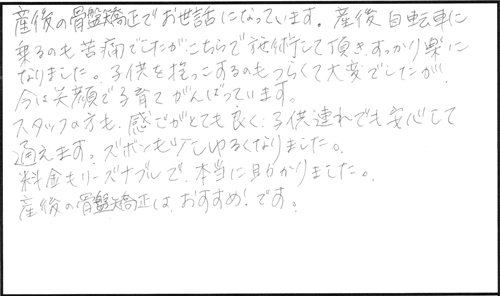 産後の骨盤矯正でお世話になっています。産後自転車に
乗るのも苦痛でしたがこちらで施術して頂き、すっかり楽に
なりました。子供を抱っこするのもつらくて大変でしたが
今は笑顔で子育てがんばっています。
スタッフの方も、感じがとても良く、子供連れでも安心して
通えます。ズボンも少しゆるくなりました。
料金もリーズナブルで、本当に助かりました。
産後の骨盤矯正は、おすすめ!です。